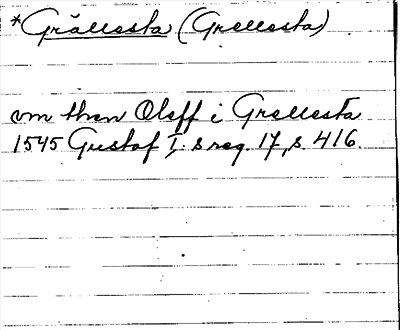 *Grällesta (Grellesta)
vm then Oleff i Grellesta
1545 Gustaf I: s reg. 17, s. 416.